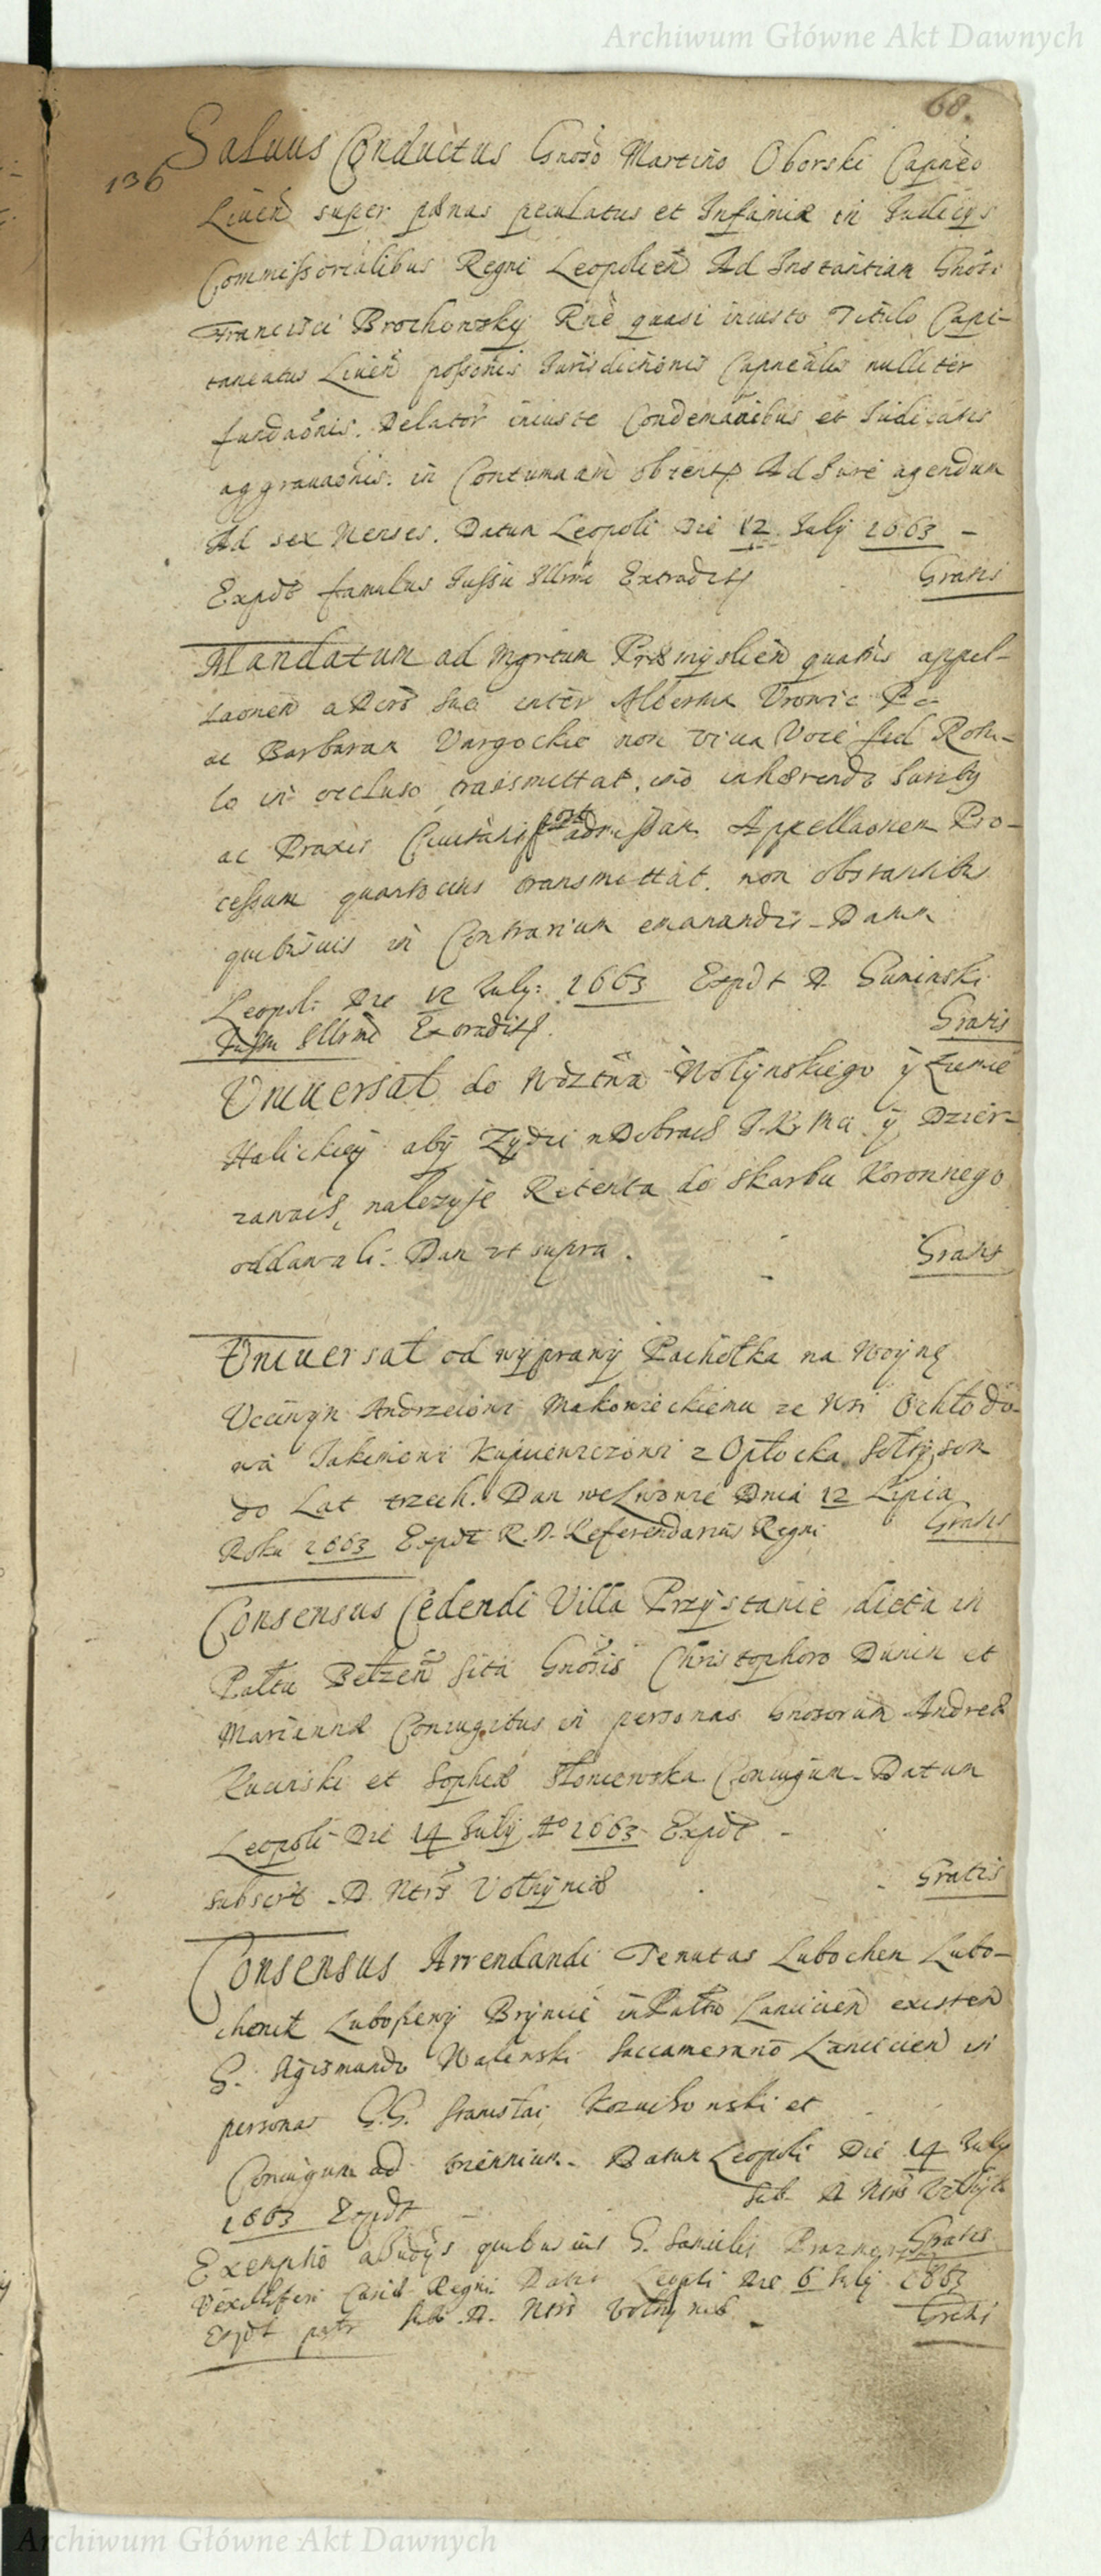 Archiwum Główne Akt Dawnych
68.
136
Saluus Conductus Gnoso Martino Oborski Capneo
Liuen super pænas peculatus et Infamiæ in Judicijs
Commissorialibus Regni Leopolien Ad Instantiam Gnosi
Francisci Brochowsky Rne quasi iniusto Titulo Capi-
taneatus Liuen possonis Jurisdictionis Capnealis nulliter
fundaonis. Delator iniuste Condemnaibus et Judicatis
aggrauaonis. in Contumaam obtent Ad Jure agendum
Ad sex Menses. Datum Leopoli Die 12 July 1663 -
Expdt famulus Jussu Illrmi Extradit
Gratis
Mandatum ad Mgrtum Præmyslien quatnis appel-
laonem a Decrs suo inter Albertum Vronic Pe-
ac Barbaram Vargockie non viua Voce sed Rotu-
lo in occluso transmittat, imo inhærendo Juriby
ac Praxis Ciuitatis post admissam Appellaonem Pro-
cessum quantocius transmittat. non obstantib
quibusuis in Contrarium emanandis - Datum
Leopoli Die 12 July: 1663 Expdt D. Guminski
Jussu Illrmi Extradit.
Gratis
Vniuersał do Wdztwa Wołynskiego y Zíemie
Halickiey aby Zydzi w Dobrach J.K.Mci y Dzier-
zawach, nalezyte Retenta do Skarbu Koronnego
oddawali. Dan ut supra.
Gratis
Vniuersał od wyprawy Pachołka na Woynę
Vczíwym Andrzeiowi Makowieckiemu ze Wsi Ochłodo-
wa Jakimowi Kapuewiczowi z Opłocka Sołtysom
do Lat trzech. Dan we Lwowie Dnia 12 Lipca
Roku 1663 Expdt R. D. Referendarius Regni
Gratis
Consensus Cedendi Villa Przystanie dicta in
Pałtu Bełzen sita Gnosis Christophoro Dunin et
Mariannæ Coniugibus in personas Gnosorum Andreæ
Rucinski et Sophiæ Słoniewska Coniugum. Datum
Leopoli Die 14 July Ao 1663 Expdt -
subscrt D. Ntrs Volhyniæ
Gratis
Consensus Arrendandi Tenutas Lubochen Lubo-
chenek Luboszewy Brynice in Pałtu Lancicien existen
G. Sigismundo Walewski Succamerario Lancicien in
personas G.G. Stanislai Kozuchowski et
Coniugum ad triennium. Datum Leopoli Die 14 July
1663 Expdt
Sub. D. Ntrs Volhyn
Exemptio a Judijs quibusuis G. Samueli
Gratis
Vexillifero Curiæ Regni Datum Leopoli Die 6 July 1663
Expdt patr Sub. D. Ntrs Volhyniæ -
Gratis
Archiwum Główne Akt Dawnych